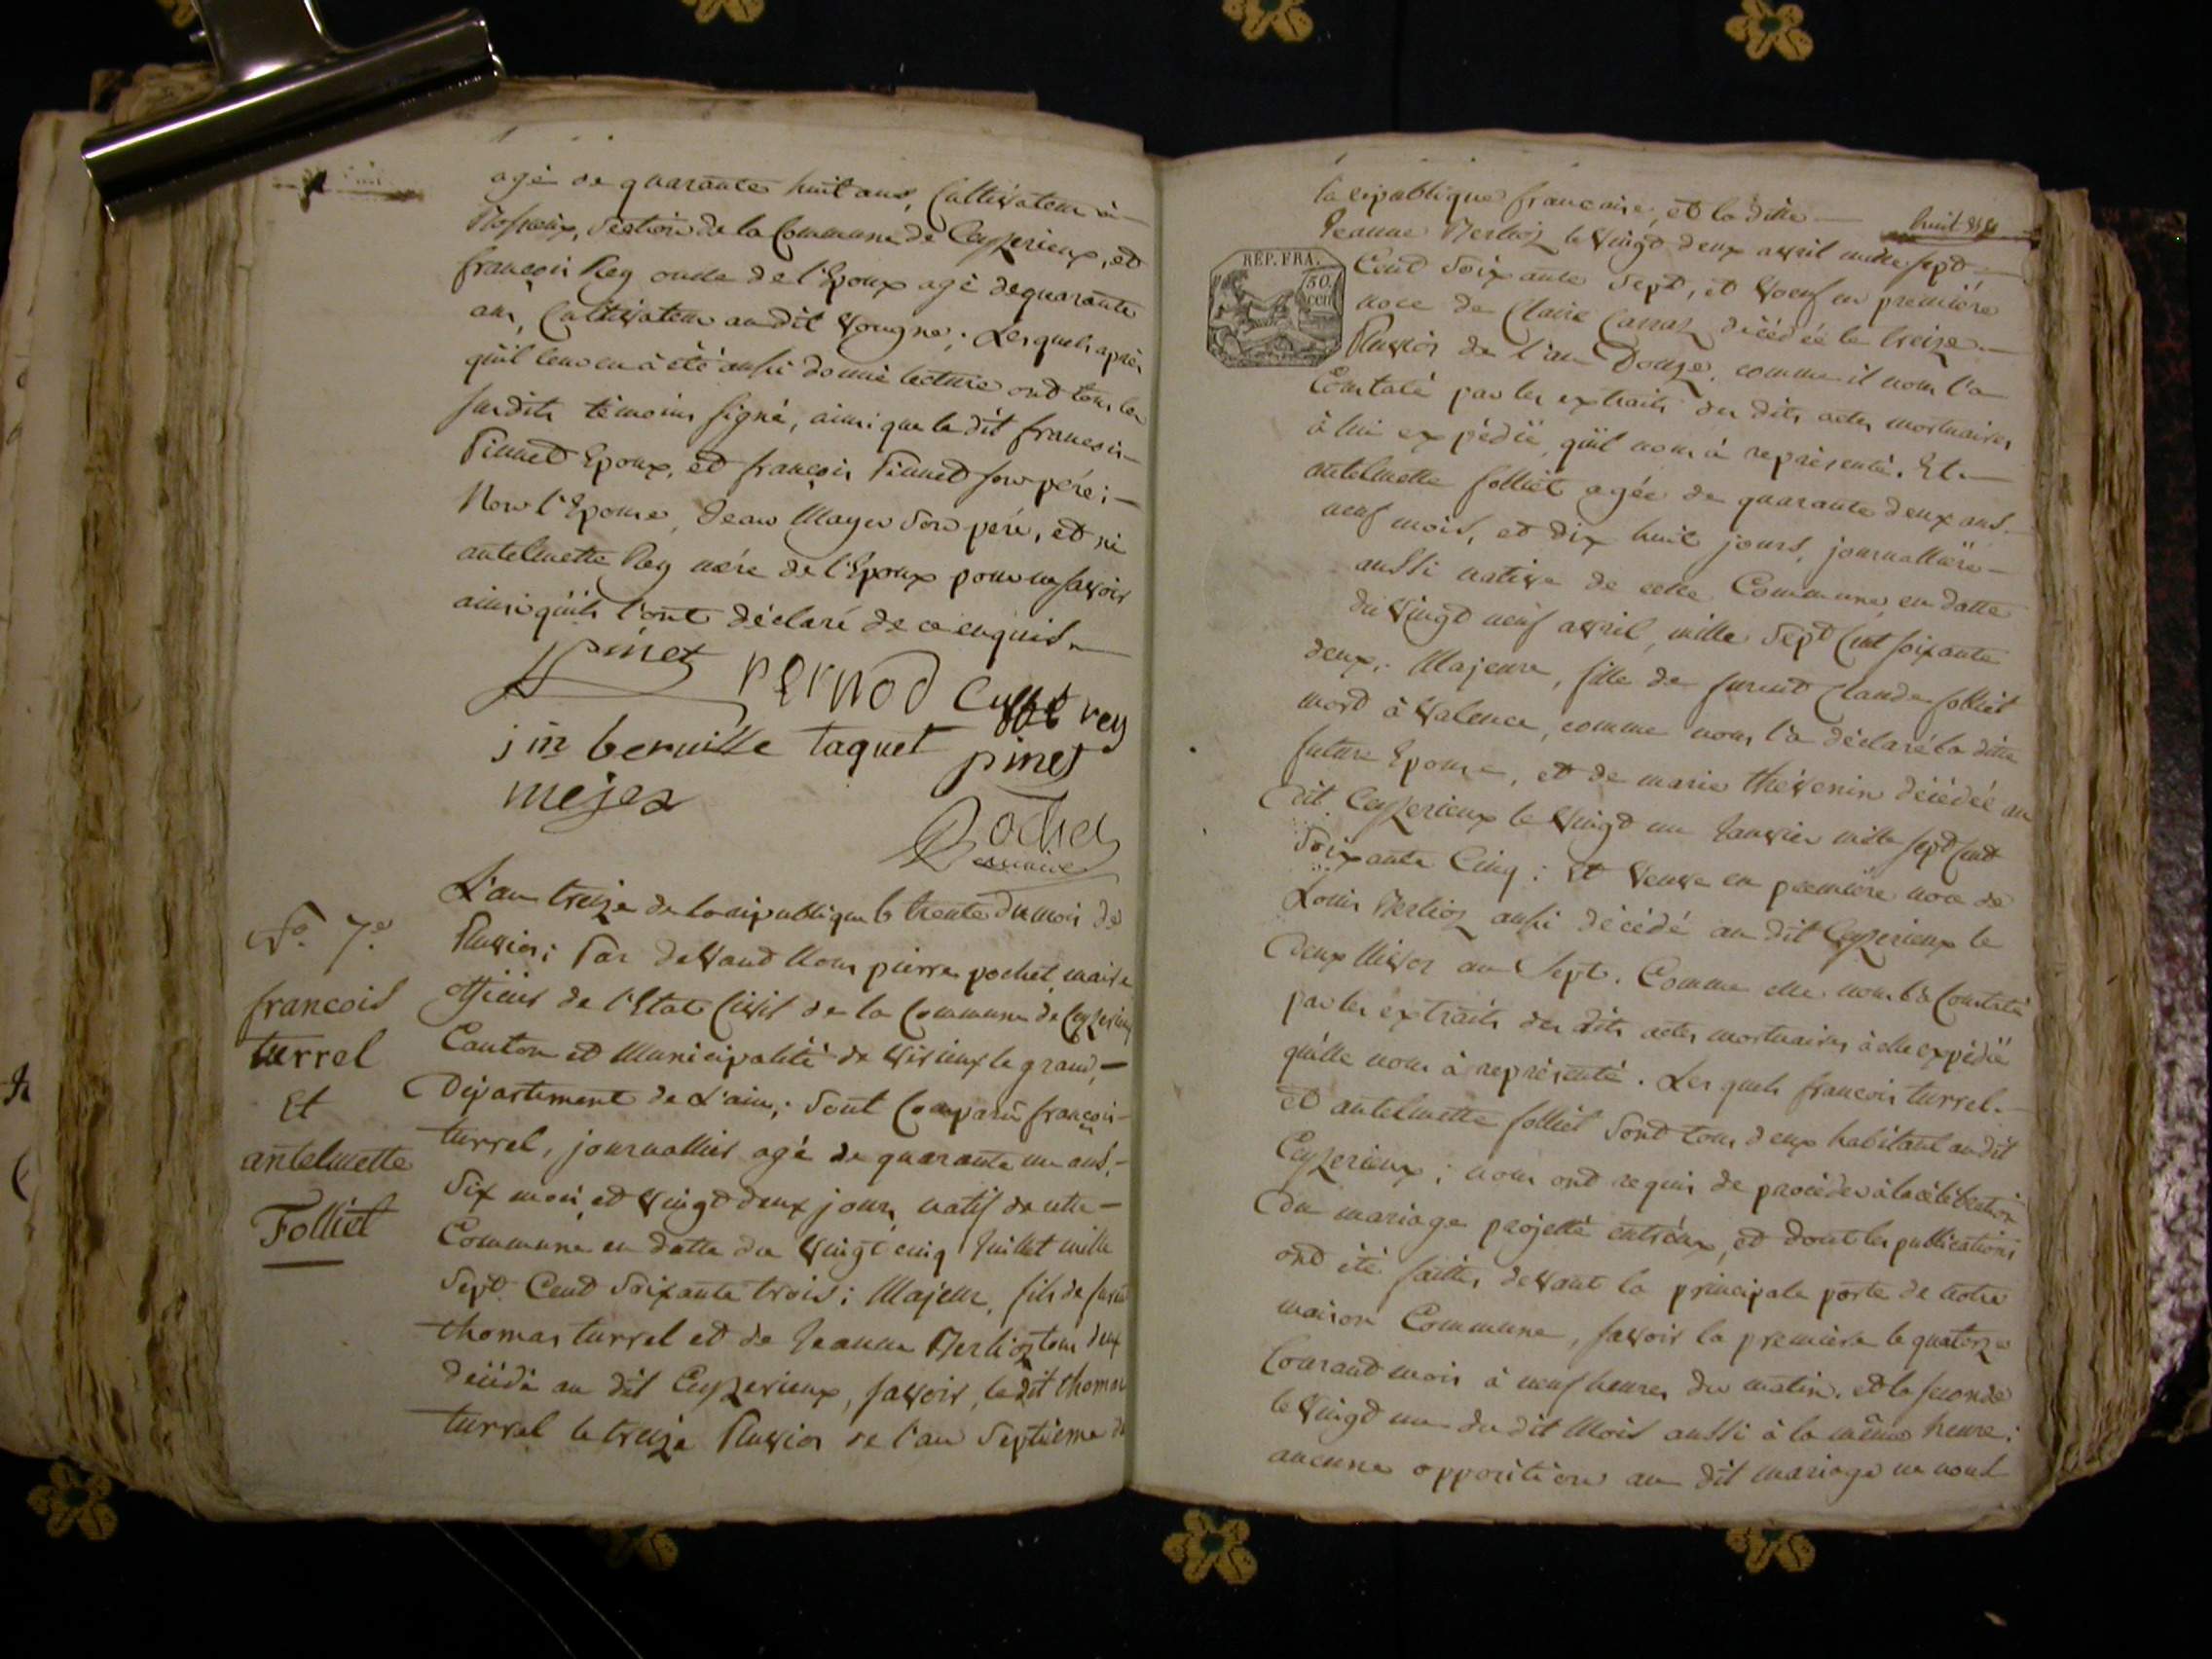 agé de quarante huit ans, Cultivateur à
section de la Commune de Ceyzerieux, et
françois Rey oncle de l'Epoux agé de quarante
ans, Cultivateur au dit Vongne; Lesquels après
qu'il leur en à été aussi donné lecture ont tous les
susdits témoins signé, ainsi que le dit françois
Pinnet Epoux, et françois Pinnet son père;
Non l'Epouse, Jean Mayer son père, et ni
antelmette Rey mère de l'Epoux pour ne savoir
ainsi qu'ils l'ont déclaré de ce enquis.
pinet pernod rey
berville taquet pinet
mejer
Pochet
maire
N.o 7.e
francois
turrel
Et
antelmette
Folliet
L'an treize de la republique le trente du mois de
Pluviôs; Par devant Nous pierre pochet, maire
officier de l'Etat Civil de la Commune de Ceyzerieux
Canton et Municipalité de Virieux le grand,
Département de L'ain; Sont Comparu françois
turrel, journallier agé de quarante un ans,
Six mois, et vingt deux jours, natif de cette
Commune en datte du vingt cinq Juillet mille
Sept Cent Soixante trois; Majeur, fils de furent
thomas turrel et de Jeanne Berlioz tous deux
décédé au dit Ceyzerieux, savoir, le dit thomas
turrel le treize Pluviôs de l'an Septième de
la république française, et la ditte
huit
Jeanne Berlioz le vingt deux avril mille sept
RÉP. FRA.
50 cen
Cent Soixante Sept, et Voeuf en première
noce de Claire Carraz décédée le treize
Pluviôs de l'an Douze, comme il nous l'a
Constaté par les extraits des dits actes mortuaires
à lui expédié, qu'il nous à représenté. Et
antelmette folliet agée de quarante deux ans
neuf mois, et dix huit jours, journallière
aussi native de cette Commune, en datte
du vingt neuf avril, mille Sept Cent soixante
deux; Majeure, fille de furent Claude folliet
mort à Valence, comme nous l'a déclaré la ditte
future Epouse, et de marie thévenin décédée au
dit Ceyzerieux le vingt un Janvier mille sept cent
Soixante Cinq; Et Veuve en première noce de
Louis Berlioz aussi décédé au dit Ceyzerieux le
deux Nivôs an Sept. Comme elle nous l'a Constaté
par les extraits des dits actes mortuaires à elle expédié
qu'elle nous à représenté. Lesquels françois turrel
et antelmette folliet sont tous deux habitant au dit
Ceyzerieux; nous ont requis de procéder à la célébration
du mariage projetté entr'eux, et dont les publications
ont été faittes devant la principale porte de notre
maison Commune, savoir la première le quatorze
Courant mois à neuf heures du matin, et la seconde
le vingt un du dit Mois aussi à la même heure;
aucune opposition au dit mariage ne nous